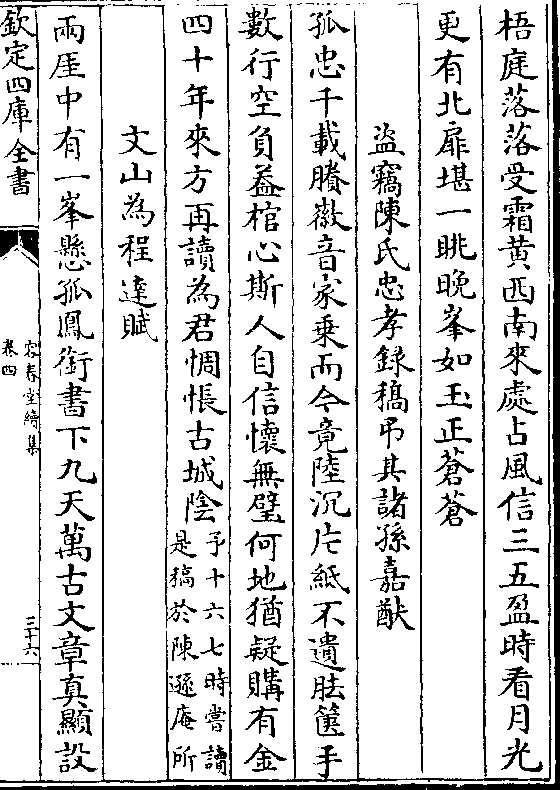 梧庭落落受霜黄西南來處占風信三五盈時看月光
更有北扉堪一眺晚峯如玉正蒼蒼
盜竊陳氏忠孝録稿弔其諸孫嘉猷
孤忠千載賸徽音家乗而今竟陸沉片紙不遺胠篋手
數行空負葢棺心斯人自信懷無璧何地猶疑購有金
四十年來方再讀為君惆悵古城陰予十六七時嘗讀
是稿於陳遜庵所
文山為程達賦
兩厓中有一峯懸孤鳳銜書下九天萬古文章真顯設
欽定四庫全書
容春堂續集
卷四
三十六